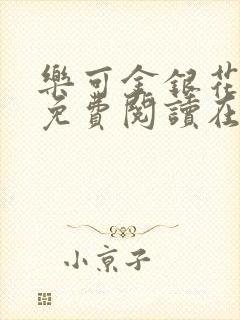 樂可金銀花
免費閱讀在
小京子